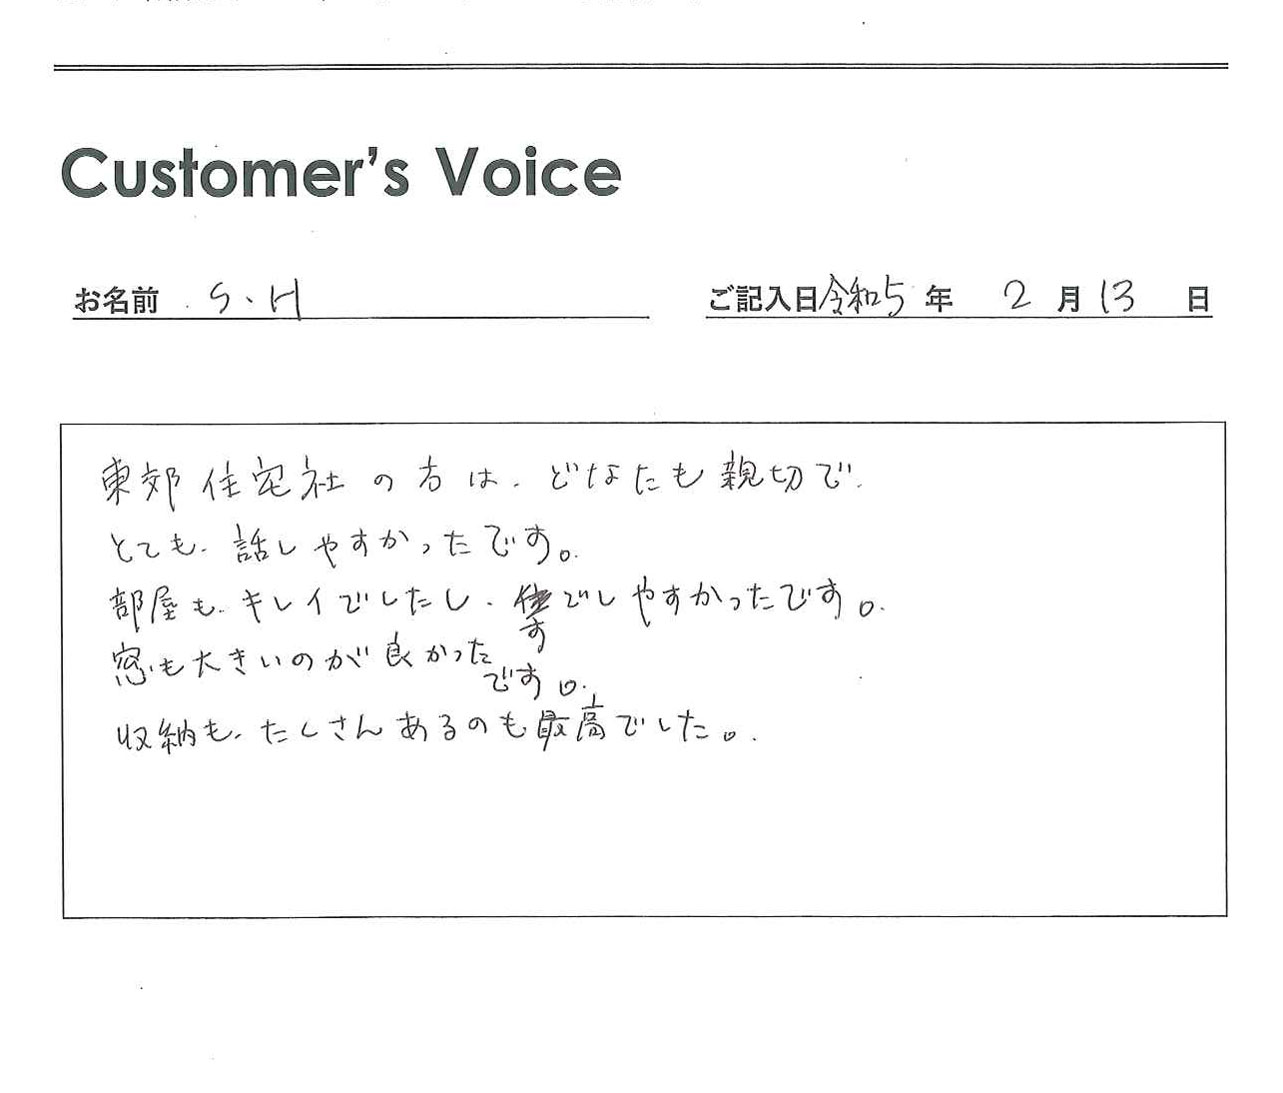 Customer's Voice
お名前 S.H
ご記入日 令和5年 2月13日
東郊住宅社の方は、どなたも親切で、
とても、話しやすかったです。
部屋も、キレイでしたし、すごしやすかったです。
窓も大きいのが良かった
です。
収納も、たくさんあるのも最高でした。